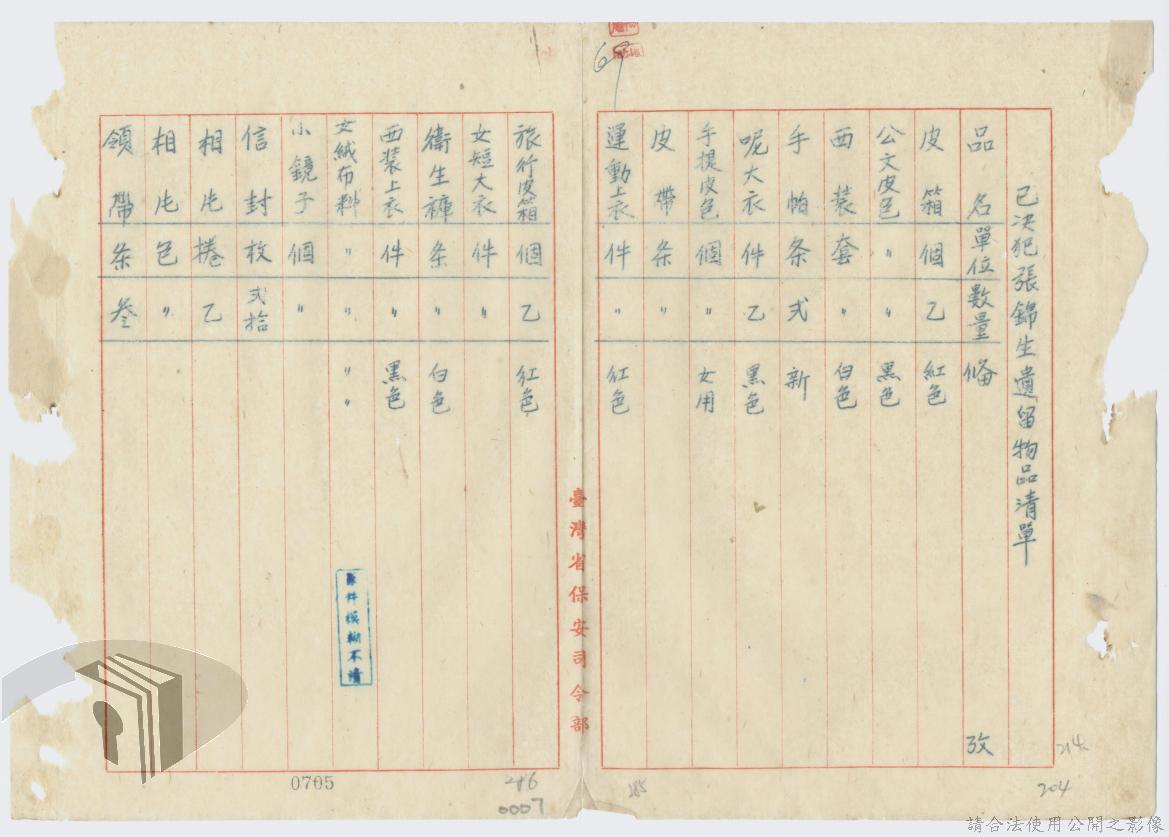 69
已决犯張錦生遺留物品清單
品名 單位 數量 俻攷
皮箱 個 乙 紅色
公文皮包 〃 〃 黑色
西裝 套 〃 白色
手帕 条 弍 新
呢大衣 件 乙 黑色
手提皮包 個 〃 女用
皮帶 条 〃
運動上衣 件 〃 紅色
臺灣省保安司令部
旅行皮箱 個 乙 紅色
女短大衣 件 〃
衛生褲 条 〃 白色
西裝上衣 件 〃 黑色
女絨布料 〃 〃 〃 〃
小鏡子 個 〃
信封 枚 弍拾
相片 捲 乙
相片 包 〃
領帶 条 叁
原件模糊不清
214
204
285
286
0705
0007
請合法使用公開之影像